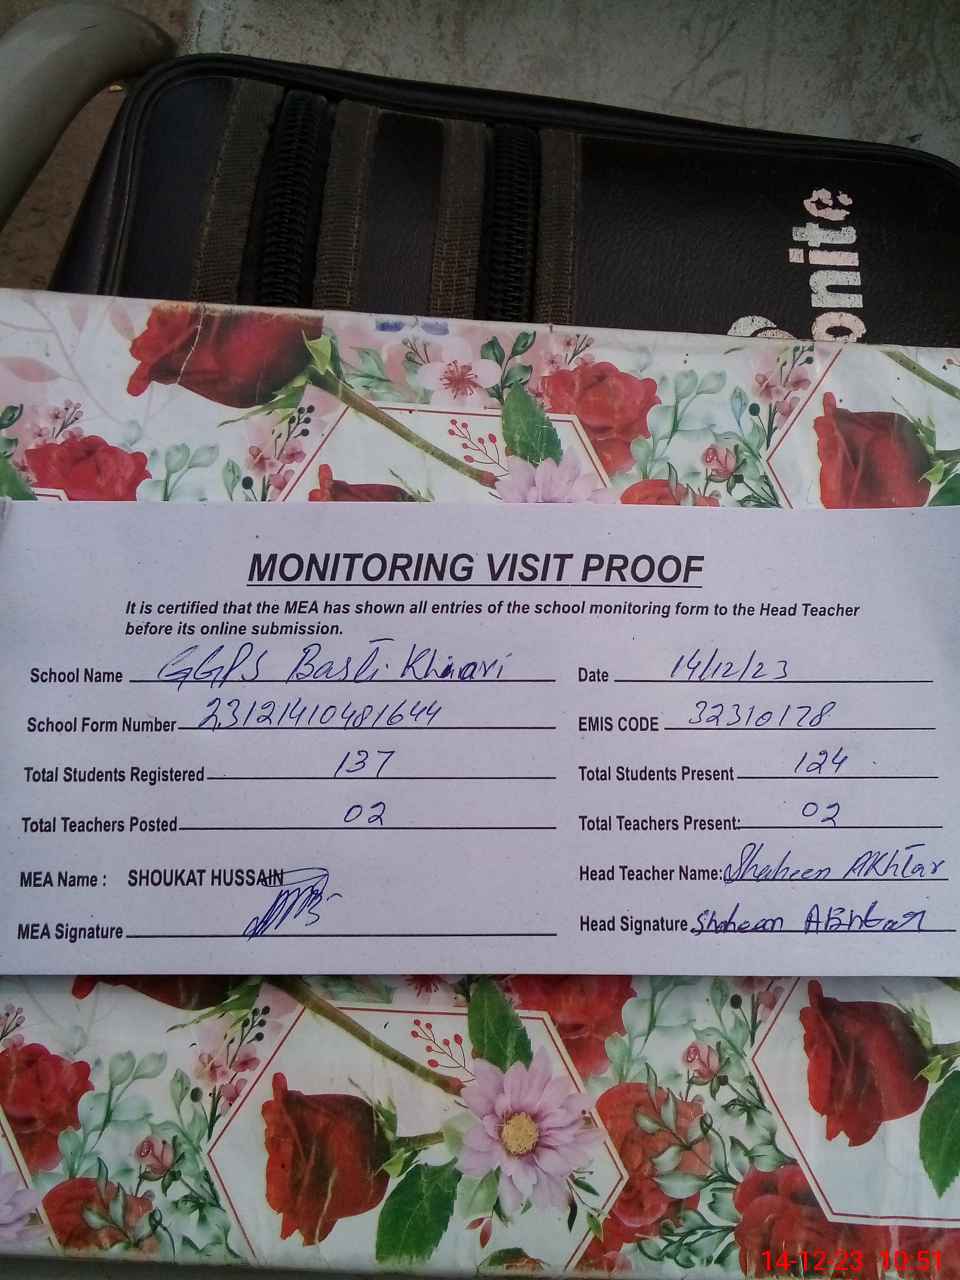 onite
MONITORING VISIT PROOF
It is certified that the MEA has shown all entries of the school monitoring form to the Head Teacher
before its online submission.
School Name GGPS Basti Khiarvi Date 14/12/23
School Form Number 23121410481644 EMIS CODE 32310178
Total Students Registered 137 Total Students Present 124
Total Teachers Posted 02 Total Teachers Present: 02
MEA Name : SHOUKAT HUSSAIN Head Teacher Name: Shaheen AKhtar
MEA Signature Head Signature Shaheen AKhtar
14-12-23 10:51